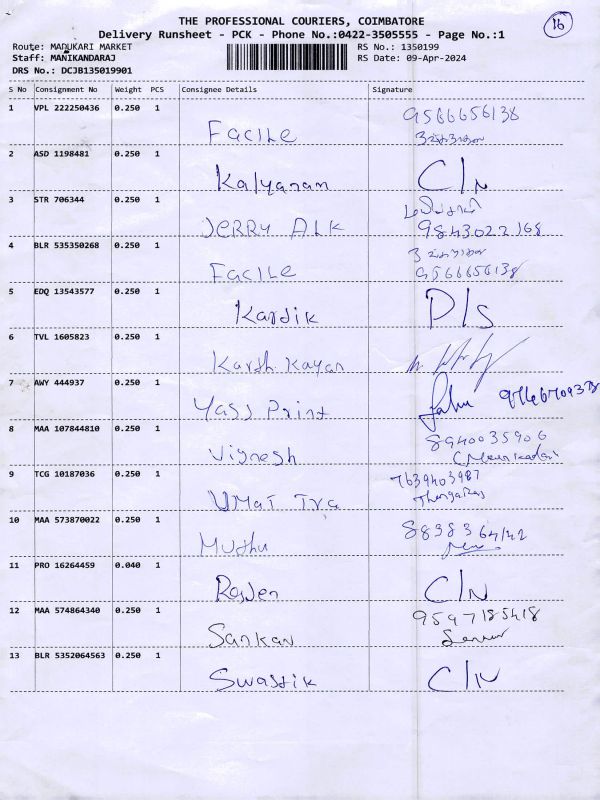 16
THE PROFESSIONAL COURIERS, COIMBATORE
Delivery Runsheet - PCK - Phone No.:0422-3505555 - Page No.:1
Route: MADUKARI MARKET RS No.: 1350199
Staff: MANIKANDARAJ RS Date: 09-Apr-2024
DRS No.: DCJB135019901
S No Consignment No Weight PCS Consignee Details Signature
1 VPL 222250436 0.250 1 9566656138
Facile
2 ASD 1198481 0.250 1
Kalyanam C/N
3 STR 706344 0.250 1
JERRY ALK 9843022168
4 BLR 535350268 0.250 1
Facile 9566656138
5 EDQ 13543577 0.250 1
Kardik D/S
6 TVL 1605823 0.250 1
Karth Kayan
7 AWY 444937 0.250 1
Yass Print
8 MAA 107844810 0.250 1 8940035906
Vignesh
9 TCG 10187036 0.250 1 7639403987
UMAT TVA ThangaRaj
10 MAA 573870022 0.250 1
Muthu
11 PRO 16264459 0.040 1
Rajven C/N
12 MAA 574864340 0.250 1 9597185418
Sankar
13 BLR 5352064563 0.250 1
Swastik C/N